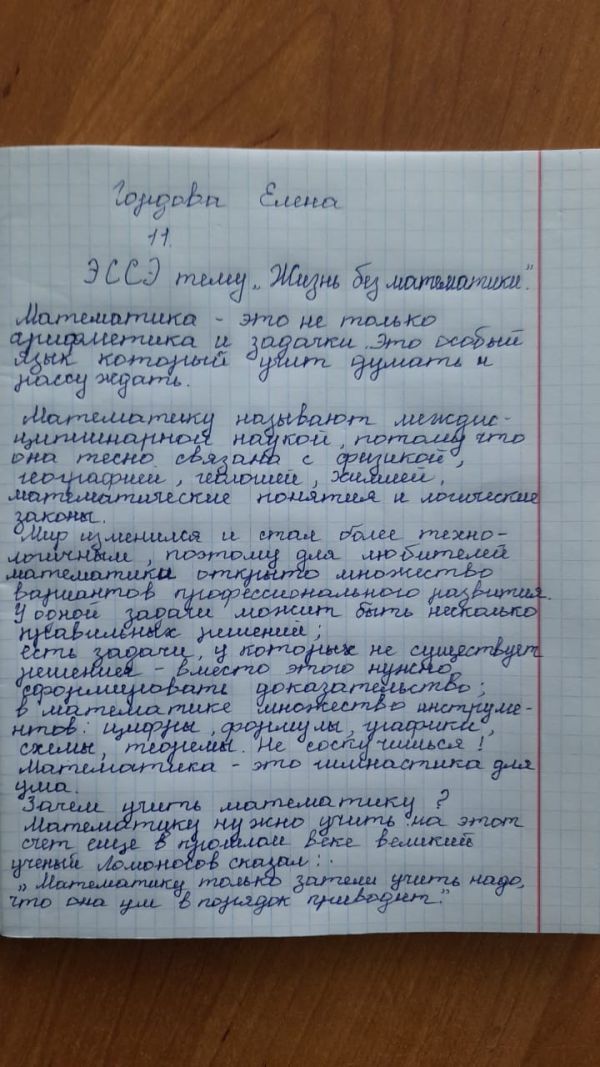 Елена
11.
ЭССЭ тему „Жизнь без математики."
Математика - это не только
арифметика и задачки. Это особый
язык который учит думать и
рассуждать.
Математику называют междис-
циплинарной наукой, потому что
она тесно связана с физикой,
географией, геолошей, химией,
математические понятия и логические
законы.
Мир изменился и стал более техно-
логичным, поэтому для любителей
математики открыто множество
вариантов профессионального развития.
У одной задачи можит быть несколько
правильных решений;
есть задачи, у которых не существует
решения - вместо этого нужно
сформировать доказательство;
в математике множество инструме-
нтов: цифры, формулы, графики,
схемы, теоремы. Не соскучишься!
Математика - это гимнастика для
ума.
Зачем учить математику?
Математику нужно учить на этот
счет еще в прошлом веке великий
ученый Ломоносов сказал:
„Математику только затем учить надо,
что она ум в порядок приводит."